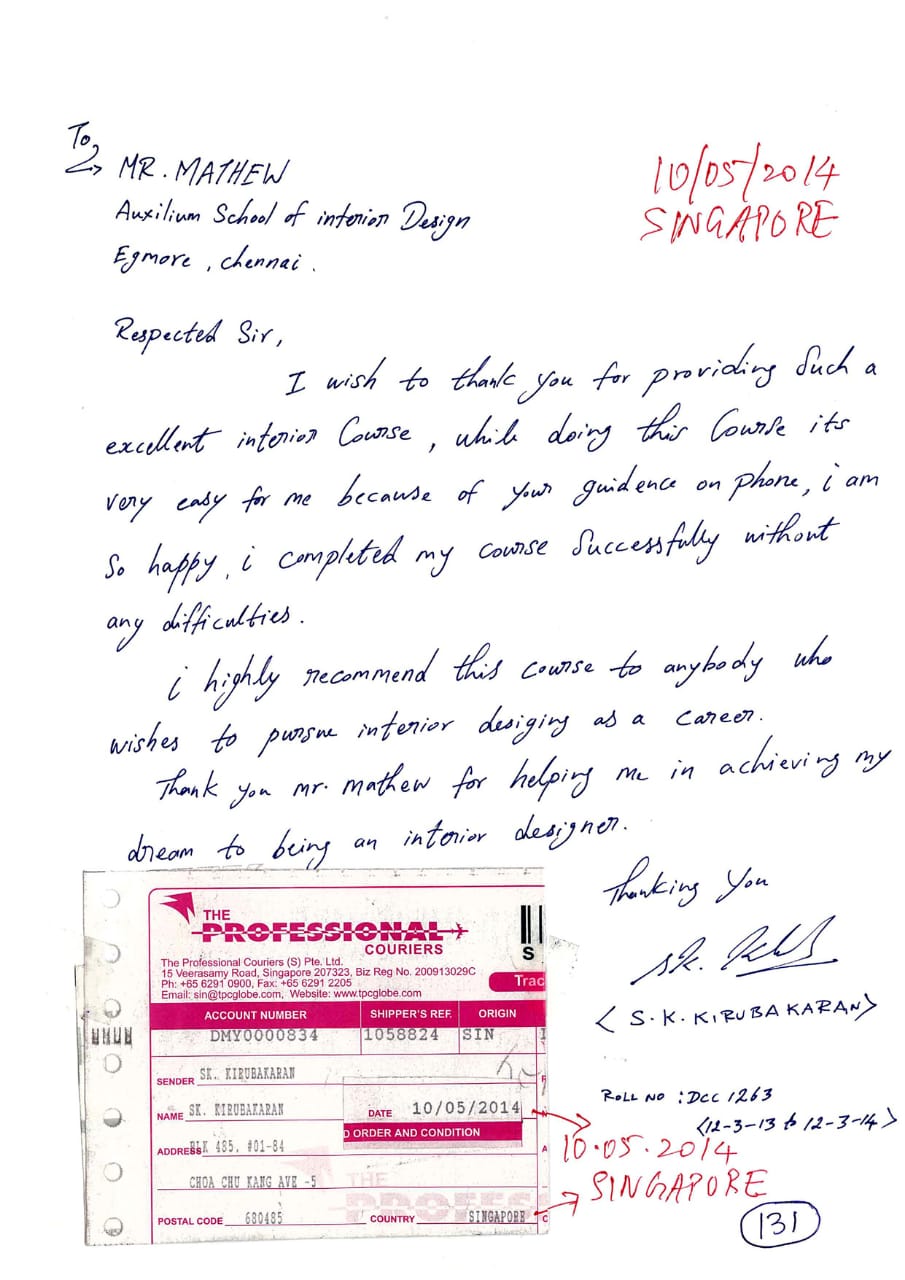 To,
MR. MATHEW
10/05/2014
Auxilium School of interior Design
SINGAPORE
Egmore, chennai.
Respected Sir,
I wish to thank you for providing Such a
excellent interior Course, while doing this Course its
very easy for me because of your guidence on phone, i am
So happy, i completed my course Successfully without
any difficulties.
i highly recommend this course to anybody who
wishes to pursue interior desiging as a career.
Thank you mr. mathew for helping me in achieving my
dream to being an interior designer.
Thanking You
<S.K. KIRUBAKARAN>
ROLL NO : DCC 1263
<12-3-13 to 12-3-14>
10.05.2014
SINGAPORE
131
THE
PROFESSIONAL
COURIERS
The Professional Couriers (S) Pte. Ltd.
15 Veerasamy Road, Singapore 207323, Biz Reg No. 200913029C
Ph: +65 6291 0900, Fax: +65 6291 2205
Email: sin@tpcglobe.com, Website: www.tpcglobe.com
S
Trac
ACCOUNT NUMBER SHIPPER'S REF. ORIGIN
DMY0000834 1058824 SIN
SENDER SK. KIRUBAKARAN
NAME SK. KIRUBAKARAN
DATE 10/05/2014
D ORDER AND CONDITION
ADDRESS BLK 485, #01-84
CHOA CHU KANG AVE -5
THE
PROFES
POSTAL CODE 680485 COUNTRY SINGAPORE